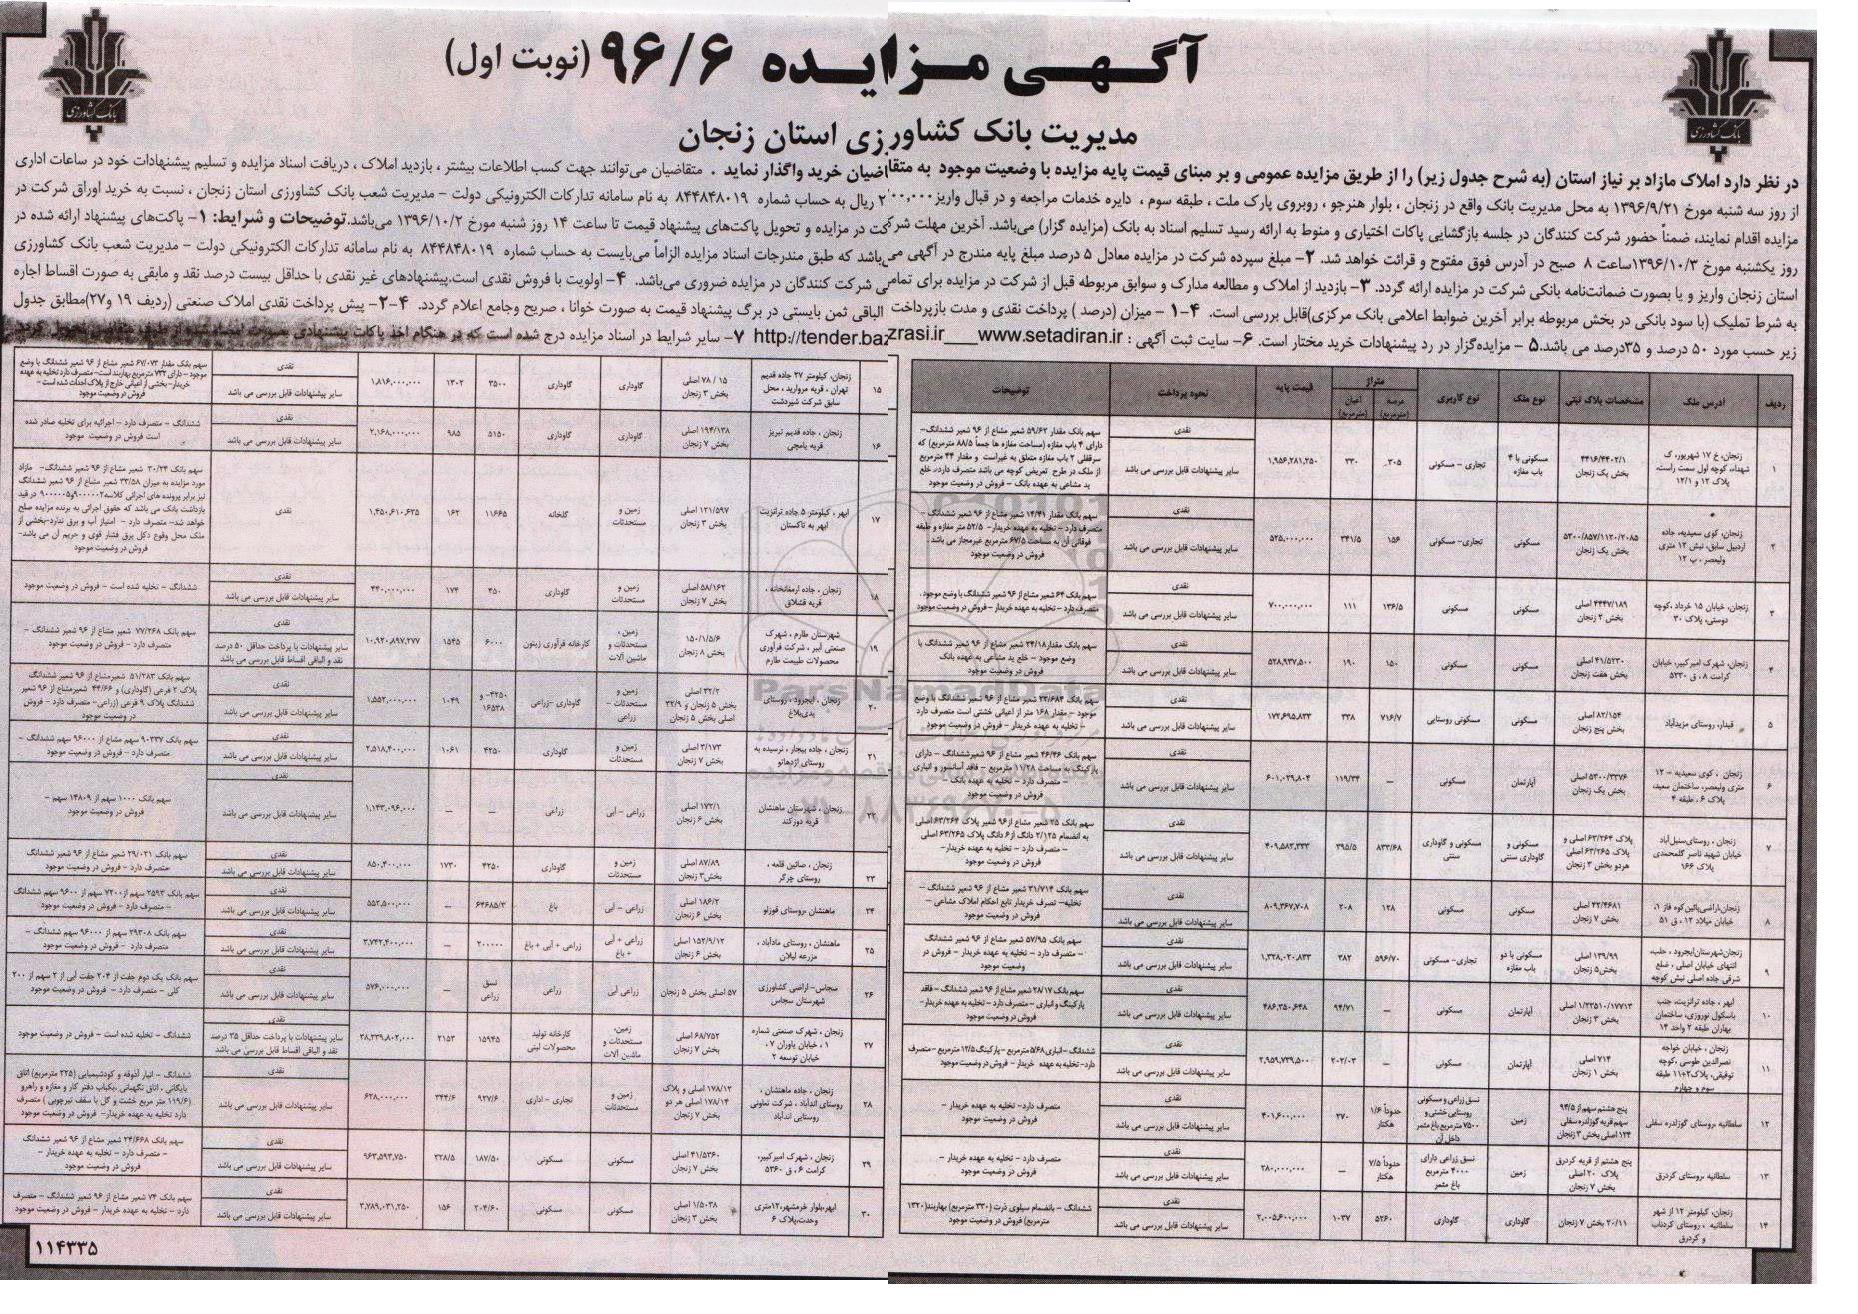 آگهی مزایده ۹۶/۶ (نوبت اول)
مدیریت بانک کشاورزی استان زنجان
بانک کشاورزی
بانک کشاورزی
در نظر دارد املاک مازاد بر نیاز استان (به شرح جدول زیر) را از طریق مزایده عمومی و بر مبنای قیمت پایه مزایده با وضعیت موجود به متقاضیان خرید واگذار نماید . متقاضیان می‌توانند جهت کسب اطلاعات بیشتر ، بازدید املاک ، دریافت اسناد مزایده و تسلیم پیشنهادات خود در ساعات اداری
از روز سه شنبه مورخ ۱۳۹۶/۹/۲۱ به محل مدیریت بانک واقع در زنجان ، بلوار هنرجو ، روبروی پارک ملت ، طبقه سوم ، دایره خدمات مراجعه و در قبال واریز ۲۰۰,۰۰۰ ریال به حساب شماره ۸۴۴۸۴۸۰۱۹ به نام سامانه تدارکات الکترونیکی دولت – مدیریت شعب بانک کشاورزی استان زنجان ، نسبت به خرید اوراق شرکت در
مزایده اقدام نمایند، ضمناً حضور شرکت کنندگان در جلسه بازگشایی پاکات اختیاری و منوط به ارائه رسید تسلیم اسناد به بانک (مزایده گزار) می‌باشد. آخرین مهلت شرکت در مزایده و تحویل پاکت‌های پیشنهاد قیمت تا ساعت ۱۴ روز شنبه مورخ ۱۳۹۶/۱۰/۲ می‌باشد. توضیحات و شرایط: ۱- پاکت‌های پیشنهاد ارائه شده در
روز یکشنبه مورخ ۱۳۹۶/۱۰/۳ ساعت ۸ صبح در آدرس فوق مفتوح و قرائت خواهد شد. ۲– مبلغ سپرده شرکت در مزایده معادل ۵ درصد مبلغ پایه مندرج در آگهی می‌باشد که طبق مندرجات اسناد مزایده الزاماً می‌بایست به حساب شماره ۸۴۴۸۴۸۰۱۹ به نام سامانه تدارکات الکترونیکی دولت - مدیریت شعب بانک کشاورزی
استان زنجان واریز و یا بصورت ضمانت‌نامه بانکی شرکت در مزایده ارائه گردد. ۳- بازدید از املاک و مطالعه مدارک و سوابق مربوطه قبل از شرکت در مزایده برای تمامی شرکت کنندگان در مزایده ضروری می‌باشد. ۴- اولویت با فروش نقدی است.پیشنهادهای غیر نقدی با حداقل بیست درصد نقد و مابقی به صورت اقساط اجاره
به شرط تملیک (با سود بانکی در بخش مربوطه برابر آخرین ضوابط اعلامی بانک مرکزی)قابل بررسی است. ۴-۱ - میزان (درصد ) پرداخت نقدی و مدت بازپرداخت الباقی ثمن بایستی در برگ پیشنهاد قیمت به صورت خوانا ، صریح وجامع اعلام گردد. ۴-۲- پیش پرداخت نقدی املاک صنعتی (ردیف ۱۹ و۲۷)مطابق جدول
زیر حسب مورد ۵۰ درصد و ۳۵درصد می باشد.۵ - مزایده‌گزار در رد پیشنهادات خرید مختار است. ۶- سایت ثبت آگهی : www.setadiran.ir____http://tender.bazrasi.ir ۷- سایر شرایط در اسناد مزایده درج شده است که در هنگام اخذ پاکات پیشنهادی بصورت امضاء شده از طرف متقاضی تحویل گردد
ردیف | آدرس ملک | مشخصات پلاک ثبتی | نوع ملک | نوع کاربری | متراژ عرصه (مترمربع) | اعیان (مترمربع) | قیمت پایه | نحوه پرداخت | توضیحات
۱ | زنجان، خ ۱۷ شهریور، ک شهداء، کوچه اول سمت راست، پلاک ۱۲ و ۱۲/۱ | ۴۴۱۶/۴۴۰۲/۱ بخش یک زنجان | مسکونی با ۴ باب مغازه | تجاری - مسکونی | ۳۰۵ | ۲۳۰ | ۱,۹۵۶,۲۸۱,۲۵۰ | نقدی / سایر پیشنهادات قابل بررسی می باشد | سهم بانک مقدار ۵۹/۶۲ شعیر مشاع از ۹۶ شعیر ششدانگ- دارای ۴ باب مغازه (مساحت مغازه ها جمعاً ۸۸/۵ مترمربع) که سرقفلی ۲ باب مغازه متعلق به غیراست و مقدار ۴۴ مترمربع از ملک در طرح تعریض کوچه می باشد متصرف دارد، خلع ید مشاعی به عهده بانک - فروش در وضعیت موجود
۲ | زنجان، کوی سعیدیه، جاده اردبیل سابق، نبش ۱۲ متری ولیعصر، پ ۱۲ | ۵۳۰۰/۸۵۷/۱۱۲۰/۲۰۸۵ بخش یک زنجان | مسکونی | تجاری- مسکونی | ۱۵۶ | ۳۴۱/۵ | ۵۲۵,۰۰۰,۰۰۰ | نقدی / سایر پیشنهادات قابل بررسی می باشد | سهم بانک مقدار ۱۴/۴۱ شعیر مشاع از ۹۶ شعیر ششدانگ - متصرف دارد - تخلیه به عهده خریدار- ۵۲/۵ متر مغازه و طبقه فوقانی آن به مساحت ۶۷/۵ مترمربع غیرمجاز می باشد فروش در وضعیت موجود
۳ | زنجان، خیابان ۱۵ خرداد ،کوچه دوستی، پلاک ۳۰ | ۴۴۴۷/۱۸۹ اصلی بخش ۲ زنجان | مسکونی | مسکونی | ۱۳۶/۵ | ۱۱۱ | ۷۰۰,۰۰۰,۰۰۰ | نقدی / سایر پیشنهادات قابل بررسی می باشد | سهم بانک ۶۴ شعیر مشاع از ۹۶ شعیر ششدانگ با وضع موجود، متصرف دارد - تخلیه به عهده خریدار - فروش در وضعیت موجود
۴ | زنجان، شهرک امیرکبیر، خیابان کرامت ۸، ق ۵۲۳۰ | ۴۱/۵۲۳۰ اصلی بخش هفت زنجان | مسکونی | مسکونی | ۱۵۰ | ۱۹۰ | ۵۲۸,۹۳۷,۵۰۰ | نقدی / سایر پیشنهادات قابل بررسی می باشد | سهم بانک مقدار ۲۴/۱۸ شعیر مشاع از ۹۶ شعیر ششدانگ با وضع موجود - خلع ید مشاعی به عهده بانک فروش در وضعیت موجود
۵ | قیدار، روستای مزیدآباد | ۸۲/۱۵۴ اصلی بخش پنج زنجان | مسکونی | مسکونی روستایی | ۷۱۶/۷ | ۳۳۸ | ۱۷۲,۶۹۵,۸۳۳ | نقدی / سایر پیشنهادات قابل بررسی می باشد | سهم بانک ۲۳/۶۸۴ شعیر مشاع از ۹۶ شعیر ششدانگ با وضع موجود - مقدار ۱۶۸ متر از اعیانی خشتی است متصرف دارد - تخلیه به عهده خریدار - فروش در وضعیت موجود
۶ | زنجان ، کوی سعیدیه - ۱۲ متری ولیعصر، ساختمان سعید، پلاک ۶ ، طبقه ۴ | ۵۳۰۰/۳۳۷۶ اصلی بخش یک زنجان | آپارتمان | مسکونی | – | ۱۱۹/۳۴ | ۶۰۱,۰۲۹,۸۰۴ | نقدی / سایر پیشنهادات قابل بررسی می باشد | سهم بانک ۴۶/۴۶ شعیر مشاع از ۹۶ شعیرششدانگ – دارای پارکینگ به مساحت ۱۱/۲۸ مترمربع - فاقد آسانسور و انباری – متصرف دارد - تخلیه به عهده بانک - فروش در وضعیت موجود
۷ | زنجان ، روستای سنبل آباد خیابان شهید ناصر گلمحمدی پلاک ۱۶۶ | پلاک ۶۳/۲۶۴ اصلی و پلاک ۶۳/۲۶۵ اصلی هردو بخش ۳ زنجان | مسکونی و گاوداری سنتی | مسکونی و گاوداری سنتی | ۸۳۳/۶۸ | ۳۹۵/۵ | ۴۰۹,۵۸۳,۳۳۳ | نقدی / سایر پیشنهادات قابل بررسی می باشد | سهم بانک ۲۵ شعیر مشاع از۹۶ شعیر پلاک ۶۳/۲۶۴ اصلی به انضمام ۲/۱۲۵ دانگ از۶ دانگ پلاک ۶۳/۲۶۵ اصلی متصرف دارد - تخلیه به عهده خریدار- فروش در وضعیت موجود
۸ | زنجان،اراضی پائین کوه فاز ۱، خیابان میلاد ۱۲ ، ق ۵۱ | ۴۲/۴۶۸۱ اصلی بخش ۷ زنجان | مسکونی | مسکونی | ۱۲۸ | ۲۰۸ | ۸۰۹,۳۶۷,۷۰۸ | نقدی / سایر پیشنهادات قابل بررسی می باشد | سهم بانک ۳۱/۷۱۴ شعیر مشاع از ۹۶ شعیر ششدانگ - تخلیه- تصرف خریدار تابع احکام املاک مشاعی - فروش در وضعیت موجود
۹ | زنجان،شهرستان ایجرود ، حلب، انتهای خیابان اصلی ، ضلع شرقی جاده اصلی نبش کوچه | ۱۳۹/۹۹ اصلی بخش۵ زنجان | مسکونی با دو باب مغازه | تجاری- مسکونی | ۵۹۶/۷۰ | ۳۸۲ | ۱,۳۲۸,۰۲۰,۸۳۳ | نقدی / سایر پیشنهادات قابل بررسی می باشد | سهم بانک ۵۷/۹۵ شعیر مشاع از ۹۶ شعیر ششدانگ - متصرف دارد - تخلیه به عهده خریدار - فروش در وضعیت موجود
۱۰ | ابهر ، جاده ترانزیت، جنب باسکول نوروزی، ساختمان بهاران طبقه ۲ واحد ۱۴ | ۱/۲۳۵۱۰/۱۷۷۱۳ اصلی بخش ۳ زنجان | آپارتمان | مسکونی | – | ۹۴/۷۱ | ۴۸۶,۳۵۰,۶۴۸ | نقدی / سایر پیشنهادات قابل بررسی می باشد | سهم بانک ۲۸/۱۷ شعیر مشاع از ۹۶ شعیر ششدانگ – فاقد پارکینگ و انباری - متصرف دارد - تخلیه به عهده خریدار- فروش در وضعیت موجود
۱۱ | زنجان ، خیابان خواجه نصرالدین طوسی ،کوچه توفیقی، پلاک۲+۱۱ طبقه سوم و چهارم | ۷۱۴ اصلی بخش ۱ زنجان | آپارتمان | مسکونی | – | ۲۰۲/۰۳ | ۲,۹۵۹,۷۳۹,۵۰۰ | نقدی / سایر پیشنهادات قابل بررسی می باشد | ششدانگ - انباری۵/۶۸ مترمربع – پارکینگ ۱۲/۵ مترمربع -متصرف دارد- تخلیه به عهده خریدار - فروش در وضعیت موجود
۱۲ | سلطانیه ،روستای گوزلدره سفلی | پنج هشتم سهم از ۹۴/۵ سهم قریه گوزلدره سفلی ۱۲۴ اصلی بخش ۳ زنجان | زمین | نسق زراعی و مسکونی روستایی خشتی و ۷۵۰۰ مترمربع باغ مثمر داخل آن | حدوداً ۱/۶ هکتار | ۲۷۰ | ۴۰۱,۶۰۰,۰۰۰ | نقدی / سایر پیشنهادات قابل بررسی می باشد | متصرف دارد- تخلیه به عهده خریدار - فروش در وضعیت موجود
۱۳ | سلطانیه ،روستای کردرق | پنج هشتم از قریه کردرق پلاک ۲۰ اصلی بخش ۷ زنجان | زمین | نسق زراعی دارای ۴۰۰۰ مترمربع باغ مثمر | حدوداً ۷/۵ هکتار | – | ۲۸۰,۰۰۰,۰۰۰ | نقدی / سایر پیشنهادات قابل بررسی می باشد | متصرف دارد - تخلیه به عهده خریدار – فروش در وضعیت موجود
۱۴ | زنجان، کیلومتر ۱۲ از شهر سلطانیه ، روستای کردناب و کردرق | ۲۰/۱۱ بخش ۷ زنجان | گاوداری | گاوداری | ۵۲۶۰ | ۱۰۳۷ | ۲,۰۰۵,۶۰۰,۰۰۰ | نقدی / سایر پیشنهادات قابل بررسی می باشد | ششدانگ - بانضمام سیلوی ذرت (۳۳۰ مترمربع) بهاربند(۱۳۲۰ مترمربع) فروش در وضعیت موجود
۱۵ | زنجان، کیلومتر ۲۷ جاده قدیم تهران ، قریه مروارید ، محل سابق شرکت شیردشت | ۷۸ / ۱۵ اصلی بخش ۳ زنجان | گاوداری | گاوداری | ۳۵۰۰ | ۱۳۰۲ | ۱,۸۱۶,۰۰۰,۰۰۰ | نقدی / سایر پیشنهادات قابل بررسی می باشد | سهم بانک مقدار ۶۷/۰۷۳ شعیر مشاع از ۹۶ شعیر ششدانگ با وضع موجود - دارای ۷۳۲ مترمربع بهاربند است- متصرف دارد تخلیه به عهده خریدار- بخشی از اعیانی خارج از پلاک احداث شده است - فروش در وضعیت موجود
۱۶ | زنجان ، جاده قدیم تبریز قریه یامچی | ۱۹۴/۱۳۸ اصلی بخش ۷ زنجان | گاوداری | گاوداری | ۵۱۵۰ | ۹۸۵ | ۲,۱۶۸,۰۰۰,۰۰۰ | نقدی / سایر پیشنهادات قابل بررسی می باشد | ششدانگ - متصرف دارد - اجرائیه برای تخلیه صادر شده است فروش در وضعیت موجود
۱۷ | ابهر ، کیلومتر ۵ جاده ترانزیت ابهر به تاکستان | ۱۲۱/۵۹۷ اصلی بخش ۳ زنجان | زمین و مستحدثات | گلخانه | ۱۱۶۶۵ | ۱۶۲ | ۱,۴۵۰,۶۱۰,۶۲۵ | نقدی | سهم بانک ۳۰/۲۴ شعیر مشاع از ۹۶ شعیر ششدانگ- مازاد مورد مزایده به میزان ۳۳/۵۸ شعیر مشاع از ۹۶ شعیر ششدانگ نیز برابر پرونده های اجرائی کلاسه۹۰۰۰۰۰۲و۹۰۰۰۰۰۵ در قید بازداشت بانک می باشد که حقوق اجرائی به برنده مزایده صلح خواهد شد- متصرف دارد - امتیاز آب و برق ندارد-بخشی از ملک محل وقوع دکل برق فشار قوی و حریم آن می باشد- فروش در وضعیت موجود
۱۸ | زنجان ، جاده ارمغانخانه ، قریه قشلاق | ۵۸/۱۶۲ اصلی بخش ۷ زنجان | زمین و مستحدثات | گاوداری | ۴۵۰ | ۱۷۴ | ۴۴۰,۰۰۰,۰۰۰ | نقدی / سایر پیشنهادات قابل بررسی می باشد | ششدانگ - تخلیه شده است - فروش در وضعیت موجود
۱۹ | شهرستان طارم ، شهرک صنعتی آببر ، شرکت فرآوری محصولات طبیعت طارم | ۱۵۰/۱/۵/۶ بخش ۸ زنجان | زمین ، مستحدثات و ماشین آلات | کارخانه فرآوری زیتون | ۶۰۰۰ | ۱۵۴۵ | ۱۰,۹۲۰,۸۹۷,۲۷۷ | نقدی / سایر پیشنهادات با پرداخت حداقل ۵۰ درصد نقد و الباقی اقساط قابل بررسی می باشد | سهم بانک ۷۷/۲۶۸ شعیر مشاع از ۹۶ شعیر ششدانگ - متصرف دارد - فروش در وضعیت موجود
۲۰ | زنجان ، ایجرود ، روستای یدی‌بلاغ | ۳۲/۲ اصلی بخش ۵ زنجان و ۳۲/۹ اصلی بخش ۵ زنجان | زمین و مستحدثات - زراعی | گاوداری -زراعی | ۴۲۵۰- و ۱۶۵۳۸ | ۱۰۴۹ | ۱,۵۵۲,۰۰۰,۰۰۰ | نقدی / سایر پیشنهادات قابل بررسی می باشد | سهم بانک ۵۱/۲۸۳ شعیرمشاع از ۹۶ شعیر ششدانگ پلاک ۲ فرعی (گاوداری) و ۴۴/۶۶ شعیرمشاع از ۹۶ شعیر ششدانگ پلاک ۹ فرعی (زراعی)- متصرف دارد - فروش در وضعیت موجود
۲۱ | زنجان ، جاده بیجار ، نرسیده به روستای اژدهاتو | ۳/۱۷۳ اصلی بخش ۷ زنجان | زمین و مستحدثات | گاوداری | ۴۲۵۰ | ۱۰۶۱ | ۲,۵۱۸,۴۰۰,۰۰۰ | نقدی / سایر پیشنهادات قابل بررسی می باشد | سهم بانک ۹۰۲۳۷ سهم مشاع از ۹۶۰۰۰ سهم ششدانگ - متصرف دارد - فروش در وضعیت موجود
۲۲ | زنجان ، شهرستان ماهنشان قریه دوزکند | ۱۷۲/۱ اصلی بخش ۶ زنجان | زراعی - آبی | زراعی | – | – | ۱,۱۴۳,۰۹۶,۰۰۰ | نقدی / سایر پیشنهادات قابل بررسی می باشد | سهم بانک ۱۰۰۰ سهم از ۱۴۸۰۹ سهم - فروش در وضعیت موجود
۲۳ | زنجان ، صائین قلعه ، روستای چرگر | ۸۷/۸۹ اصلی بخش۳ زنجان | زمین و مستحدثات | گاوداری | ۴۲۵۰ | ۱۷۳۰ | ۸۵۰,۴۰۰,۰۰۰ | نقدی / سایر پیشنهادات قابل بررسی می باشد | سهم بانک ۲۹/۰۲۱ شعیر مشاع از ۹۶ شعیر ششدانگ متصرف دارد - فروش در وضعیت موجود
۲۴ | ماهنشان ،روستای قوزلو | ۱۸۶/۲ اصلی بخش ۶ زنجان | زراعی - آبی | باغ | ۶۴۶۸۵/۳ | – | ۵۵۲,۵۰۰,۰۰۰ | نقدی / سایر پیشنهادات قابل بررسی می باشد | سهم بانک ۲۵۹۳ سهم از۷۲۰۰ سهم از ۹۶۰۰ سهم ششدانگ - متصرف دارد - فروش در وضعیت موجود
۲۵ | ماهنشان ، روستای مادآباد ، مزرعه لیلان | ۱۵۲/۹/۱۲ اصلی بخش ۶ زنجان | زراعی + آبی + باغ | زراعی + آبی + باغ | ۲۰۰۰۰۰ | – | ۳,۷۴۲,۴۰۰,۰۰۰ | نقدی / سایر پیشنهادات قابل بررسی می باشد | سهم بانک ۲۹۳۰۸ سهم از ۹۶۰۰۰ سهم ششدانگ - متصرف دارد - فروش در وضعیت موجود
۲۶ | سجاس- اراضی کشاورزی شهرستان سجاس | ۵۷ اصلی بخش ۵ زنجان | زراعی آبی | زراعی | نسق زراعی | – | ۵۷۶,۰۰۰,۰۰۰ | نقدی / سایر پیشنهادات قابل بررسی می باشد | سهم بانک یک دوم جفت از ۲۰۴ جفت آبی از ۲ سهم از ۲۰۰ کلی - متصرف دارد - فروش در وضعیت موجود
۲۷ | زنجان ، شهرک صنعتی شماره ۱ ، خیابان یاوران ۷ ، خیابان توسعه ۲ | ۶۸/۷۵۲ اصلی بخش ۷ زنجان | زمین، مستحدثات و ماشین آلات | کارخانه تولید محصولات لبنی | ۱۵۹۴۵ | ۲۱۵۳ | ۳۸,۳۳۹,۸۰۲,۰۰۰ | نقدی / سایر پیشنهادات با پرداخت حداقل ۳۵ درصد نقد و الباقی اقساط قابل بررسی می باشد | ششدانگ - تخلیه شده است - فروش در وضعیت موجود
۲۸ | زنجان ، جاده ماهنشان ، روستای اندآباد ، شرکت تعاونی روستایی اندآباد | ۱۷۸/۱۲ اصلی و پلاک ۱۷۸/۱۴ اصلی هر دو بخش ۷ زنجان | زمین و مستحدثات | تجاری - اداری | ۹۲۷/۶ | ۳۴۴/۶ | ۶۲۸,۰۰۰,۰۰۰ | نقدی / سایر پیشنهادات قابل بررسی می باشد | ششدانگ - انبار آذوقه و کودشیمیایی (۲۲۵ مترمربع) اتاق بایگانی ، اتاق نگهبانی ،یکباب دفتر کار و مغازه و راهرو (۱۱۹/۶ متر مربع خشت و گل با سقف تیرچوبی ) متصرف دارد تخلیه به عهده خریدار- فروش در وضعیت موجود
۲۹ | زنجان ، شهرک امیرکبیر، کرامت ۶ ، ق ۵۳۶۰ | ۴۱/۵۳۶۰ اصلی بخش ۷ زنجان | مسکونی | مسکونی | ۱۸۷/۵۰ | ۳۳۸/۵ | ۹۶۳,۵۹۳,۷۵۰ | نقدی / سایر پیشنهادات قابل بررسی می باشد | سهم بانک ۲۴/۶۶۸ شعیر مشاع از ۹۶ شعیر ششدانگ - متصرف دارد - تخلیه به عهده خریدار - فروش در وضعیت موجود
۳۰ | ابهر،بلوار خرمشهر،۱۲متری وحدت،پلاک ۶ | ۱/۵۰۳۸ اصلی بخش ۳ زنجان | مسکونی | مسکونی | ۲۰۴/۶۰ | ۱۵۶ | ۳,۷۸۹,۰۳۱,۲۵۰ | نقدی / سایر پیشنهادات قابل بررسی می باشد | سهم بانک ۷۴ شعیر مشاع از ۹۶ شعیر ششدانگ - متصرف دارد - تخلیه به عهده خریدار - فروش در وضعیت موجود
۱۱۴۳۳۵
ParsNamadData